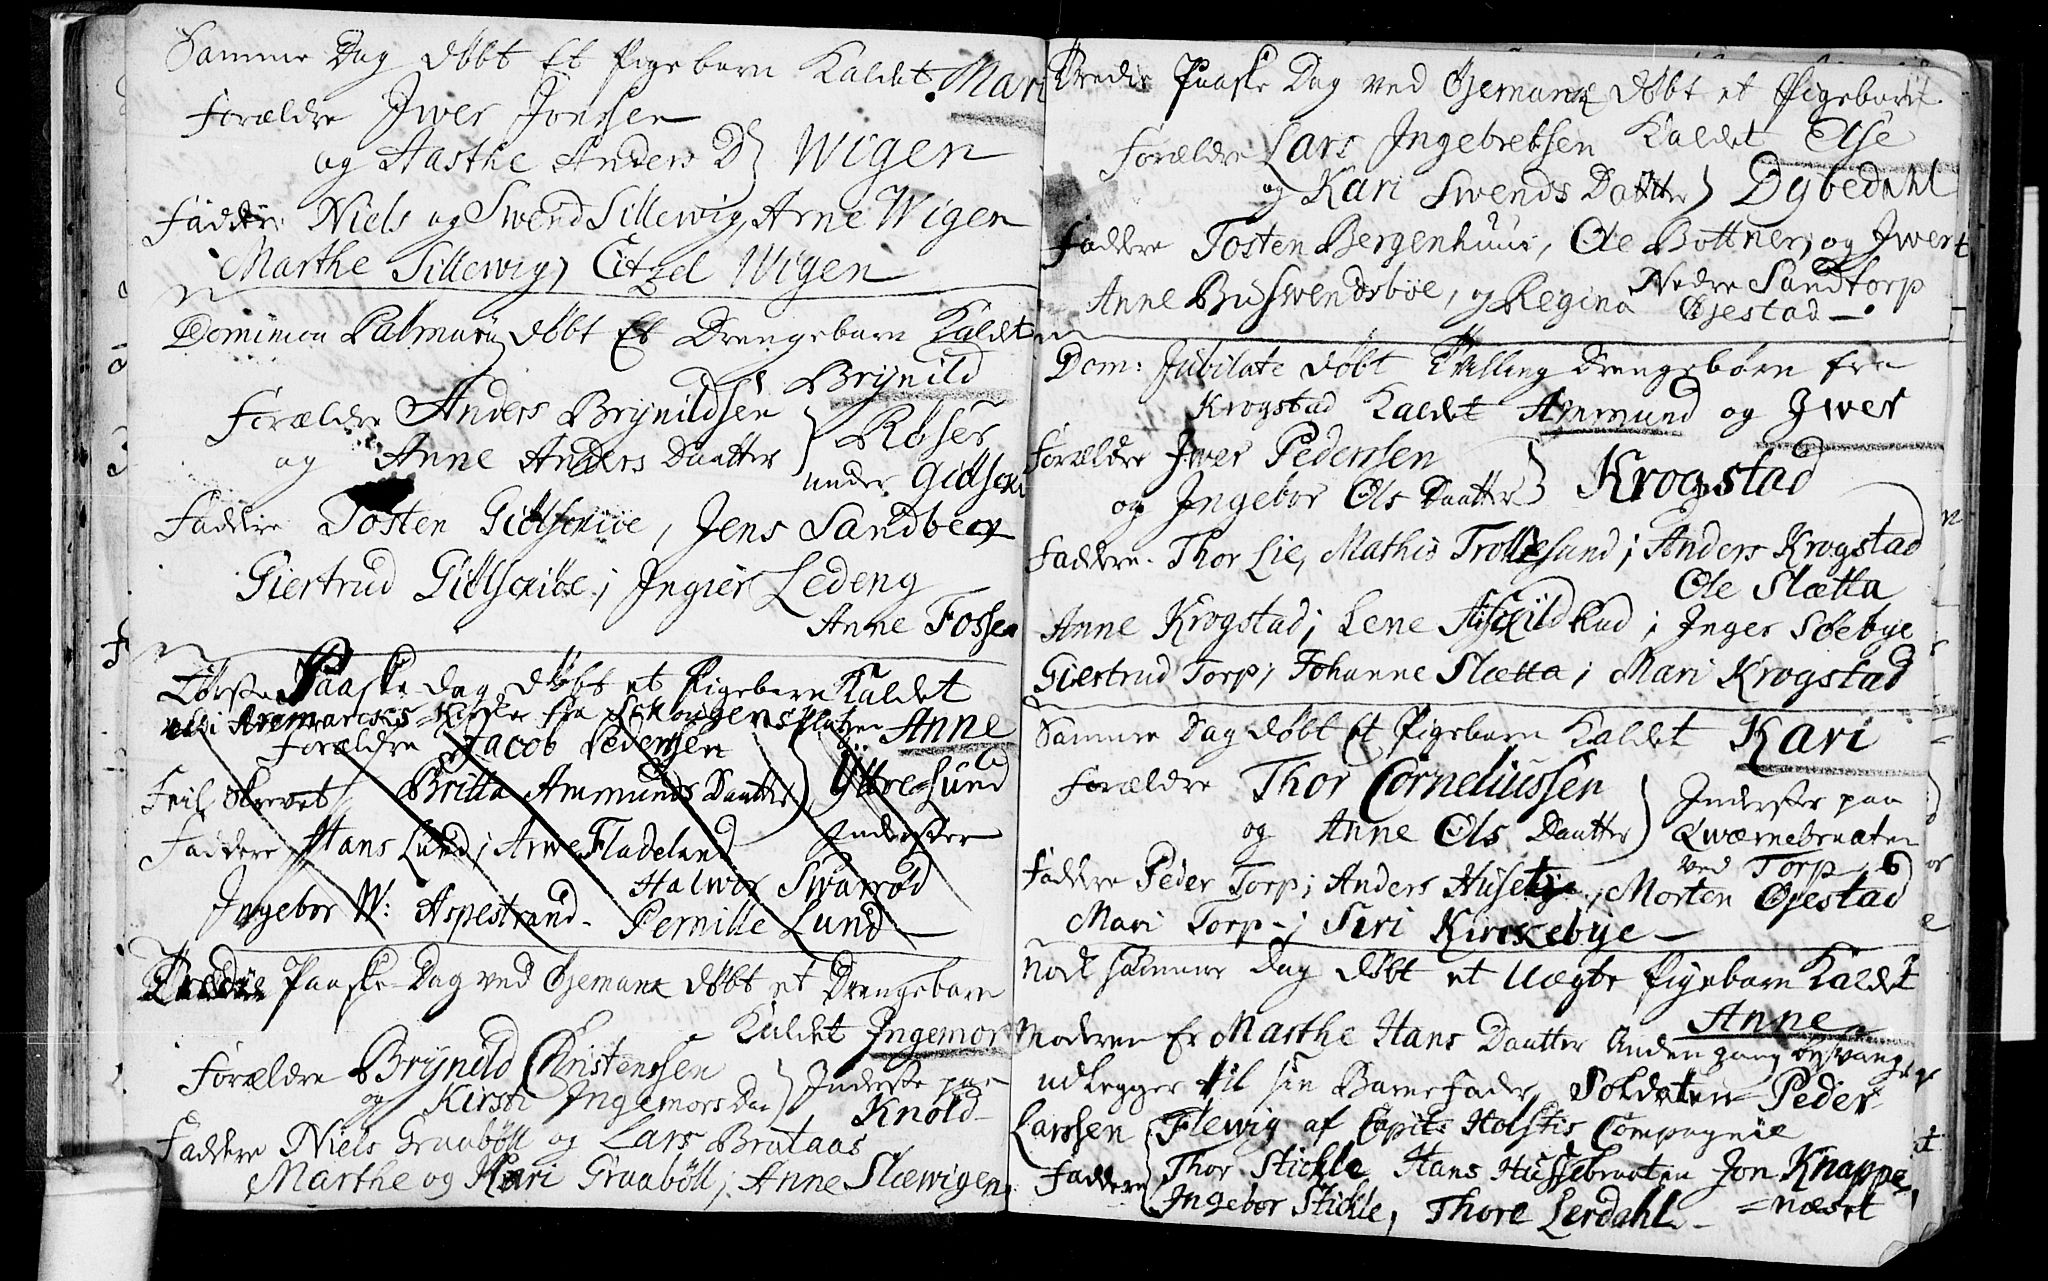 Samme Dag døbt Et Pige barn Kaldet Mari
Forældre Jwer Jonssen
og Aasthe Anders D Wigen
Faddere Niels og Swend Sillewig, Arne Wigen
Marthe Sillewig, Eitzel Wigen
Dominica Palmarū døbt Et Drengebarn Kaldt
Brynild
Forældre Anders Brynildsen
og Anne Anders Daatter
Røser
under
Faddere Tosten, Jens Sandbeck
Giertrud; Ingier Ledeng
Anne Fossen
Første Paaske-dag døbt et Pigebarn Kaldet
udi Aremarckes Kircke fra Schougens Platzen Anne
Forældre Jacob Pedersen
Feil Skrevet Britta Ammunds Daatter Yttre-Lund
Faddere Hans Lund; Arne Fladeland Inderster
Halwor Swarrød
Ingebor W: Aspestrand - Pernille Lund
Tredie Paaske-Dag ved Øjemarck døbt et Drengebarn
Kaldet Ingemor
Forældre Brynild Christenssen
og Kirsti Ingemors Daa Inderste paa
Knold
Faddere Niels Graabøll og Lars Brataas
Marthe og Kari Graabøll, Anne Slæwigen
Tredie Paaske Dag ved Øjemarck døbt et Pigebarn
Kaldet Else
Forældre Lars Ingebretsen
og Kari Swends Datter Dybedahl
Faddere Tosten Bergenhuus, Ole Bottner, og Jwer
Nedre Sandtorp
Anne Buswendsbøe, og Regina Øjestad
Dom: Jubilate døbt Tvilling Drengebørn fra
Krogstad Kaldet Ammund og Jwer
Forældre Jwer Pederssen
og Ingebor Ols Daatter Krogstad
Faddere. Thor Lie, Mathis Trollesund; Anders Krogstad
Ole Slætta
Anne Krogstad; Lene Rud; Inger Solebye
Giertrud Torp; Johanne Slætta; Mari Krogstad
Samme Dag døbt Et Pigebarn Kaldet Kari
Forældre Thor Corneliussen
og Anne Ols Daatter
Inderster paa
Qwærnebraaten
ved Torp
Faddere Peder Torp; Anders Husetz; Morten Øjestad
Mari Torp; Siri Kirckebye
Nok samme Dag døbt et Uægte Pigebarn Kaldet
Anne
Moderen Er Marthe Hans Daatter Anden gang
udlegger til sin Barne Fader, Soldaten Peder
Larssen Flewig af Capits Holstis Compagnie
Faddere Thor Stickle Hans Hussebraaten Jon Knappe
=næset
Ingebor Stickle, Thore Lerdahl